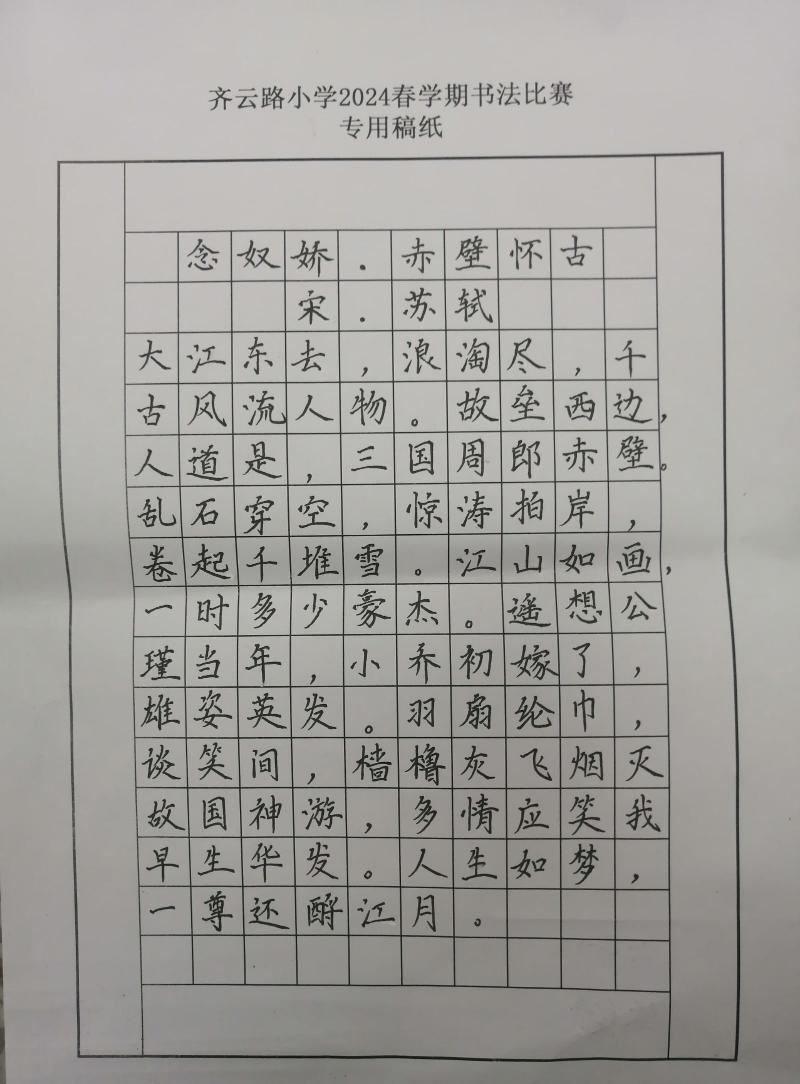 齐云路小学2024春学期书法比赛
专用稿纸
念奴娇.赤壁怀古
宋.苏轼
大江东去，浪淘尽，千
古风流人物。故垒西边，
人道是，三国周郎赤壁。
乱石穿空，惊涛拍岸，
卷起千堆雪。江山如画，
一时多少豪杰。遥想公
瑾当年，小乔初嫁了，
雄姿英发。羽扇纶巾，
谈笑间，樯橹灰飞烟灭
故国神游，多情应笑我
早生华发。人生如梦，
一尊还酹江月。